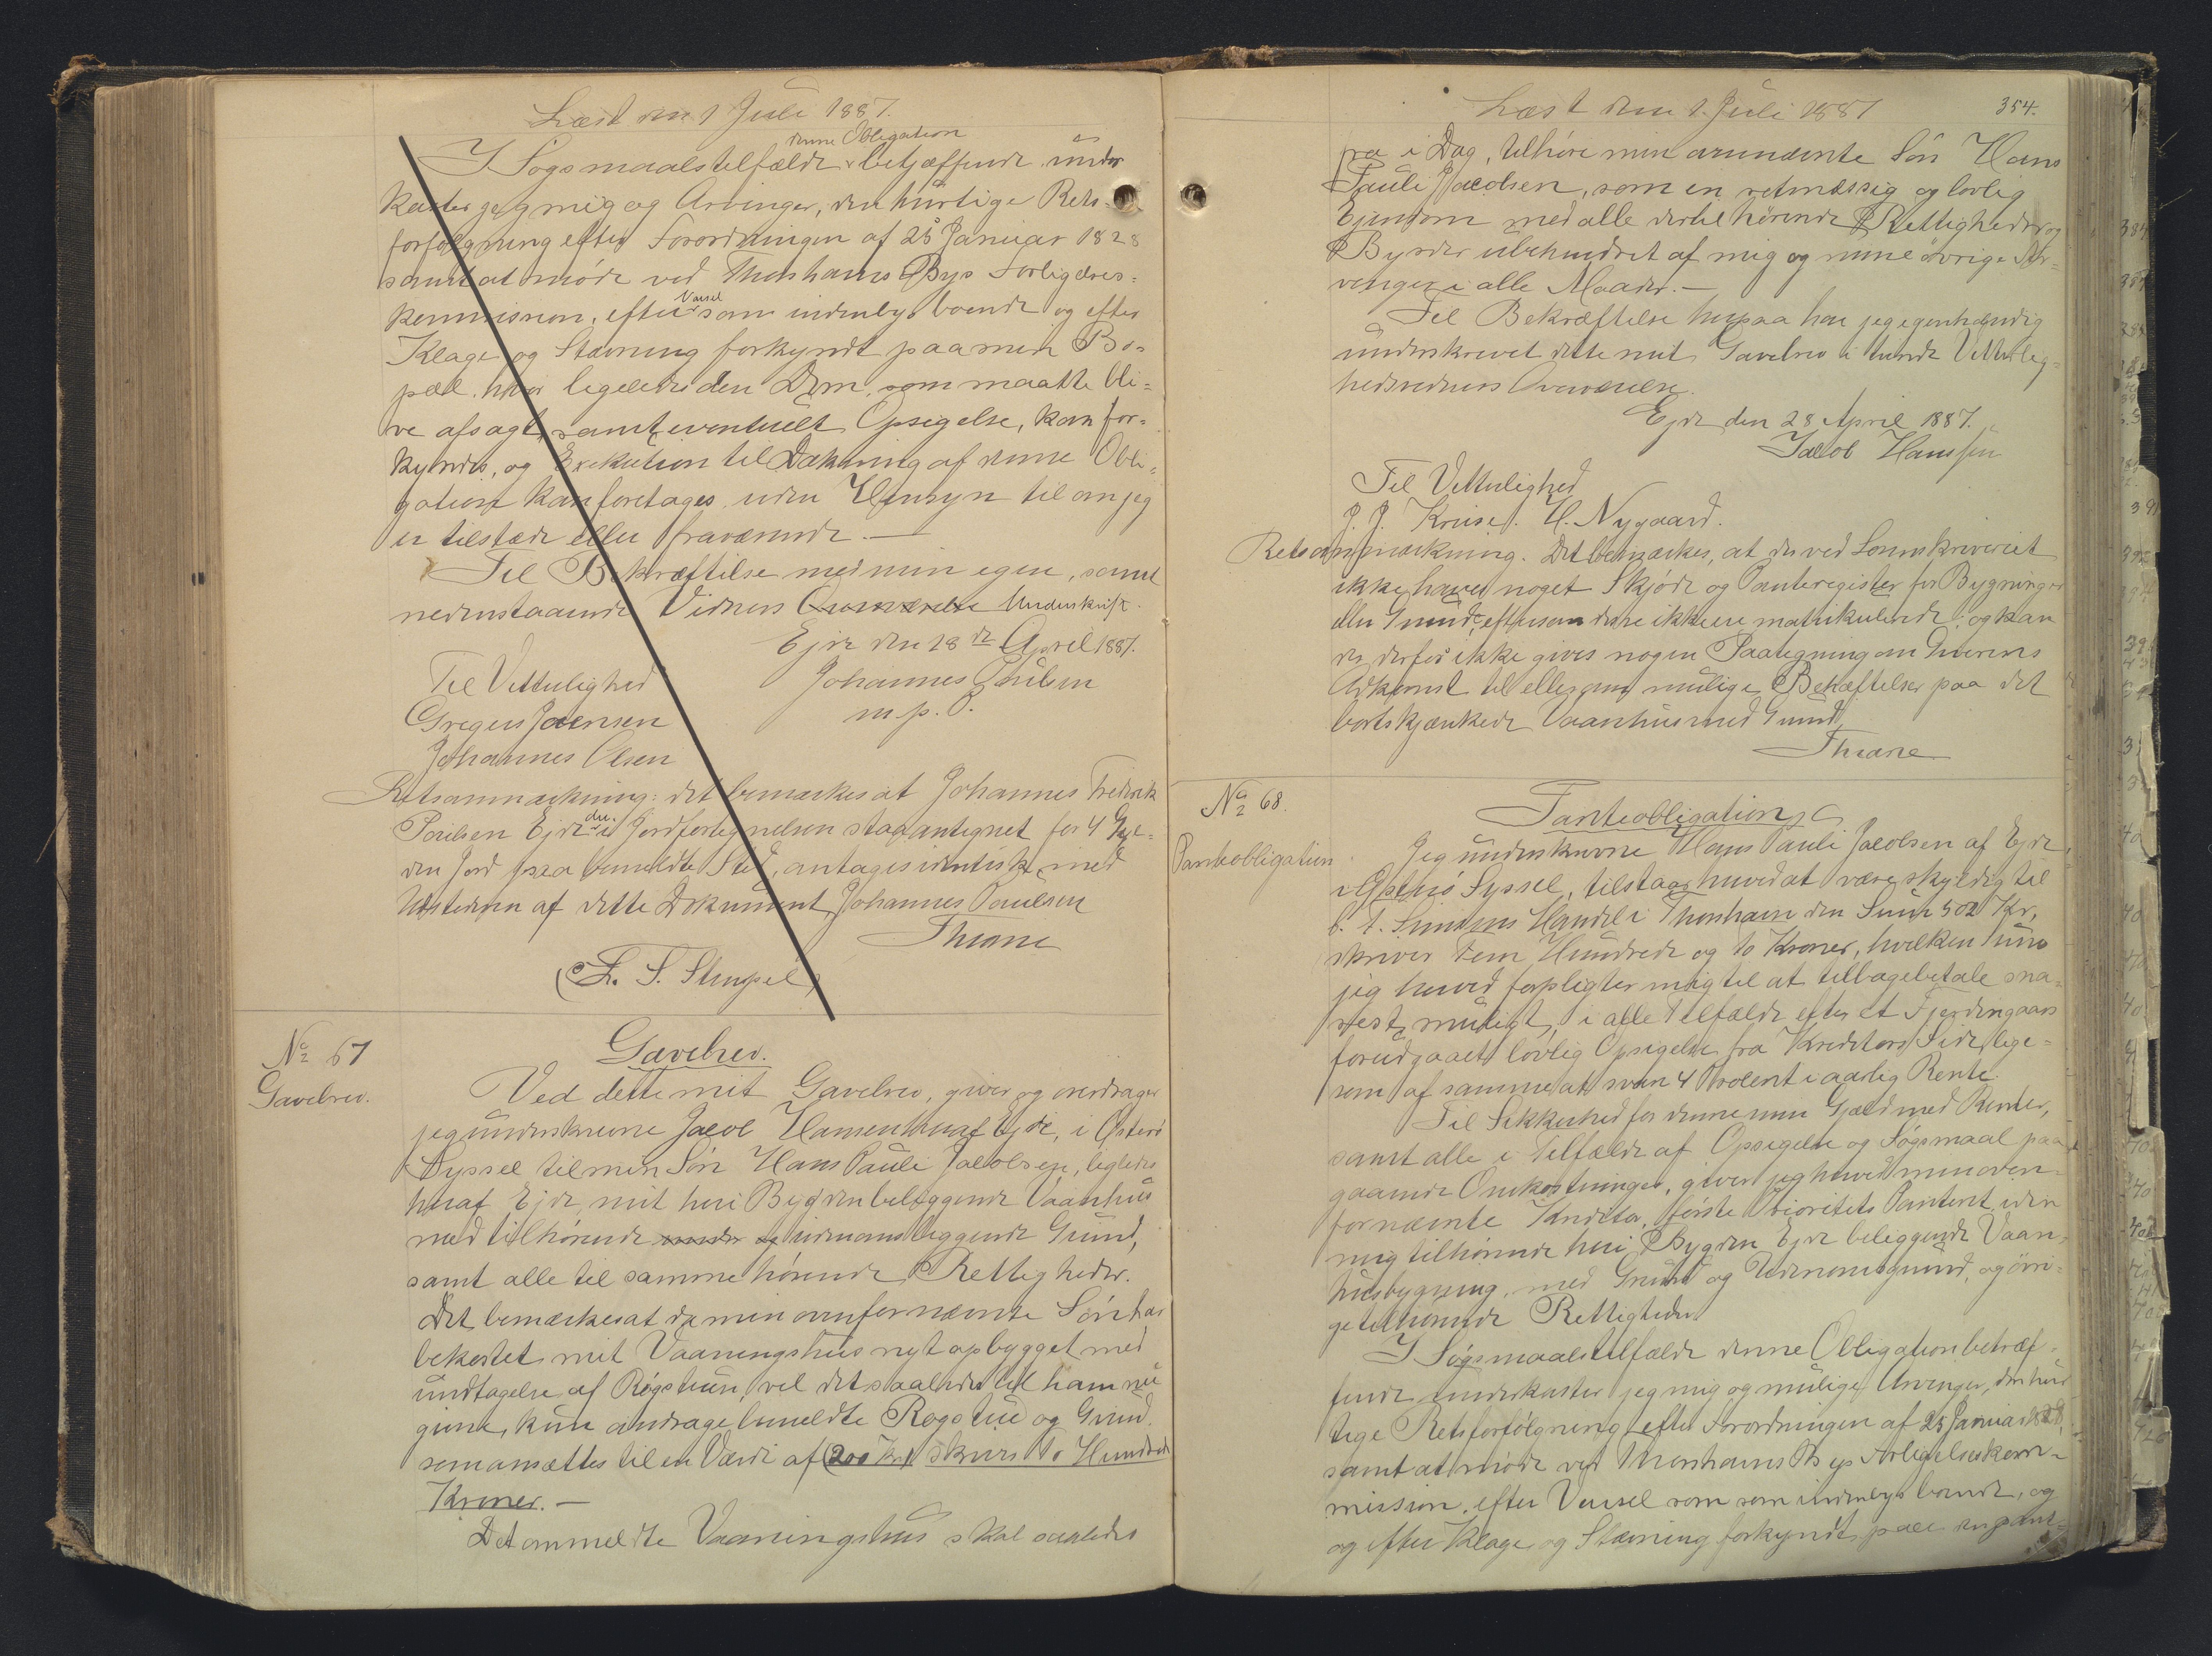 Læst den 1 Juli 1887.
denne Obligation
I Søgsmaalstilfælde betræffende under
kaster jeg mig og Arvinger, den hurtige Rets-
forfølgning efter Forordningen af 25 Januar 1828
samt at møde ved Thorshavns Bys Forligelses-
kommission, efter Varsel som indenbys boende og efter
Klage og Stævning forkyndt paa min Bo-
pæl, hvor ligeledes den Dom, som maatte bli-
ve afsagt, samt eventuelt Opsigelse, kan for-
kyndes, og Exekution til Dækning af denne Obli-
gation kan foretages uden Hensyn til om jeg
er tilstæde eller fraværende. —
Til Bekræftelse med min egen, samt
nedenstaaende Vidners Overværelse Underskrift.
Ejde den 28de April 1887.
Til Vitterlighed Johannes Poulsen
Gregers Joensen m. p. P.
Johannes Olsen
Retsanmærkning: det bemærkes at Johannes Fredrik
Poulsen Ejde der i Jordfortegnelsen staar antegnet for 4 Gyl-
den Jord paa bemeldte Sted, antages identisk med
Udstederen af dette Dokument Johannes Poulsen
Thrane
(L. S. Stempel)
No 67
Gavebrev.
Gavebrev.
Ved dette mit Gavebrev, giver og overdrager
jeg underskrevne Jacob Hansen heraf Ejde, i Østerø
Syssel til min Søn Hans Pauli Jacobsen, ligeledes
heraf Ejde, mit her i Bygden beliggende Vaanhus
med tilhørende under og udenomsliggende Grund,
samt alle til samme hørende Rettigheder.
Det bemærkes at da min ovenfornævnte Søn har
bekostet mit Vaaningshus nyt opbygget med
undtagelse af Røgstuen, vil det saaledes til ham nu
givne, kun andrage bemeldte Røgstue og Grund
som ansættes til en Værdi af (200 Kr) skriver To Hundrede
Kroner. —
Det ommeldte Vaaningshus skal saaledes
Læst den 1. Juli 1887
354.
fra i Dag, tilhøre min ovennævnte Søn Hans
Pauli Jacobsen, som en retmæssig og lovlig
Ejendom med alle dertil hørende Rettigheder og
Byrder ubehindret af mig og mine øvrige Ar-
vinger i alle Maader. —
Til Bekræftelse herpaa har jeg egenhændig
underskrevet dette mit Gavebrev i tvende Vitterlig-
hedsvidners Overværelse.
Ejde den 28 April 1887.
Jacob Hansen
Til Vitterlighed
J. J. Kruse. H. Nygaard.
Retsanmærkning. Det bemærkes, at der ved Sorenskriveriet
ikke haves noget Skjøde og Panteregister for Bygninger
eller Grund, eftersom disse ikke ere matrikulerede; og kan
der derfor ikke gives nogen Paategning om Giverens
Adkomst til eller om mulige Behæftelser paa det
bortskjænkede Vaanhus med Grund.
Thrane
No 68.
Panteobligation
Panteobligation
Jeg underskrevne Hans Pauli Jacobsen af Ejde
i Østerø Syssel, tilstaar herved at være skyldig til
Handel i Thorshavn den Sum 502 Kr,
skriver Fem Hundrede og to Kroner, hvilken Sum
jeg herved forpligter mig til at tilbagebetale sna-
rest muligt, i alle Tilfælde efter et Fjerdingaars
forudgaaet lovlig Opsigelse fra Kreditors Side, lige-
som af samme at svare 4 Procent i aarlig Rente.
Til Sikkerhed for denne min Gjæld med Renter,
samt alle i Tilfælde af Opsigelse og Søgsmaal paa
gaaende Omkostninger, giver jeg herved min oven-
fornævnte Kreditor, første Prioritets Panteret i den
mig tilhørende her i Bygden Ejde beliggende Vaan-
husbygning, med Grund og Udenomsgrund, og øvri-
ge tilhørende Rettigheder
I Søgsmaalstilfælde denne Obligation betræf-
fende underkaster jeg mig og mulige Arvinger, den hur
tige Retsforfølgning efter Forordningen af 25 Januar 1828,
samt at møde ved Thorshavns Bys Forligelseskom-
mission, efter Varsel som som indenbys boende, og
og efter Klage og Stævning forkyndt paa